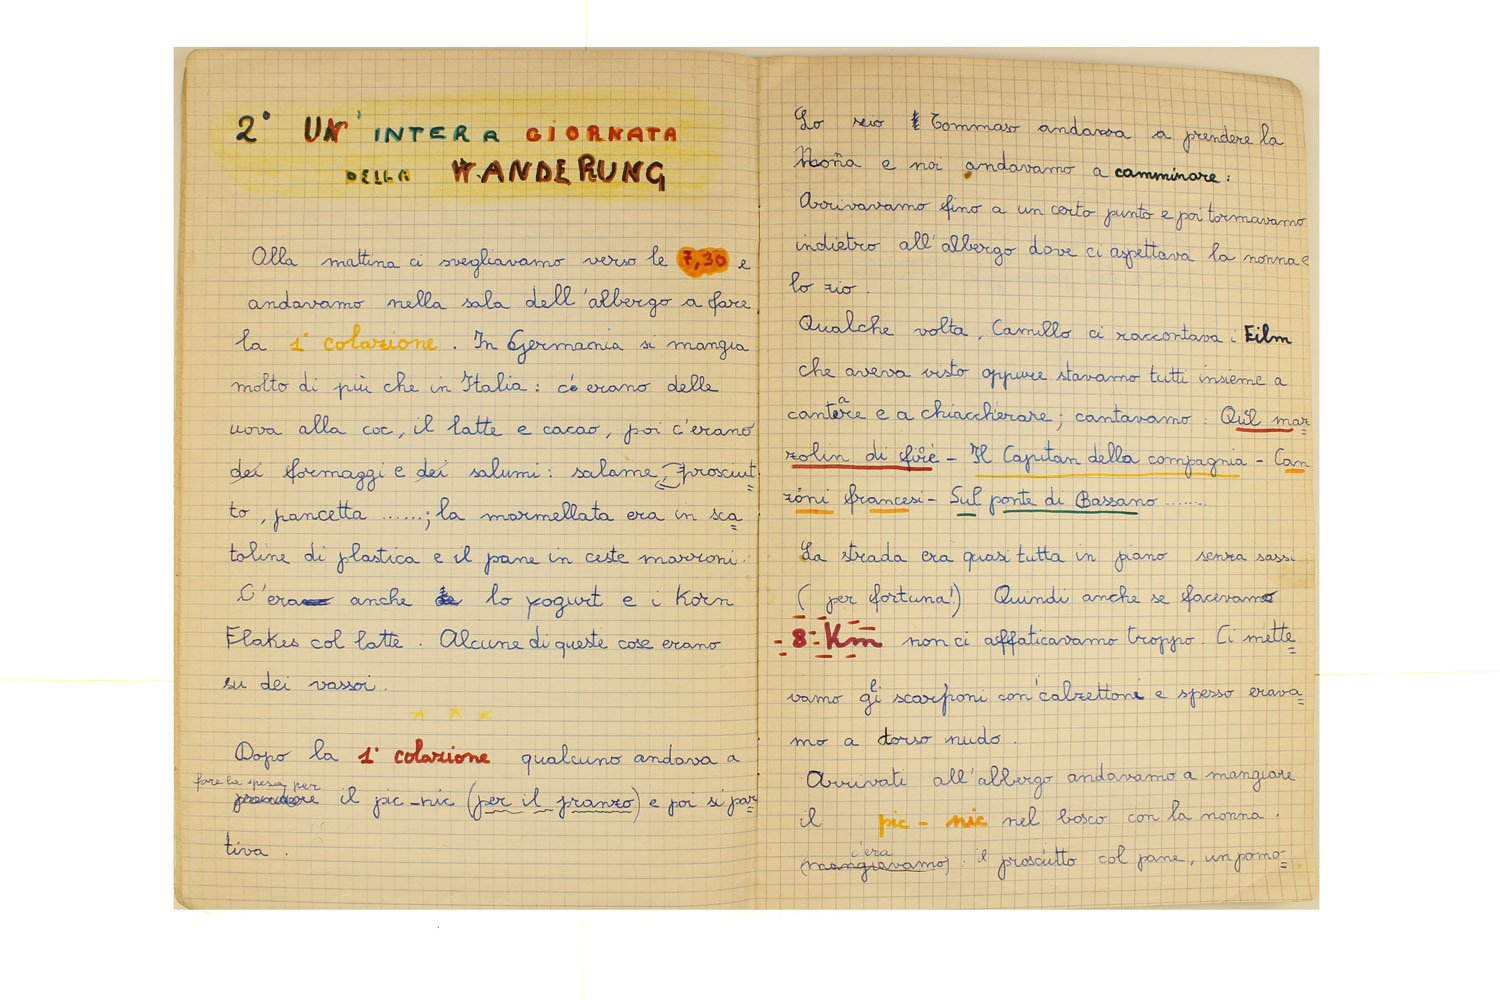 2° UN' INTERA GIORNATA
DELLA WANDERUNG
Alla mattina ci svegliavamo verso le 7,30 e
andavamo nella sala dell'albergo a fare
la 1ª colazione. In Germania si mangia
molto di più che in Italia: c'erano delle
uova alla coc, il latte e cacao, poi c'erano
dei formaggi e dei salumi: salame, prosciut=
to, pancetta ......; la marmellata era in sca=
toline di plastica e il pane in ceste marroni.
C'era anche lo yogurt e i Korn
Flakes col latte. Alcune di queste cose erano
su dei vassoi.
Dopo la 1ª colazione qualcuno andava a
fare la spesa per
prendere il pic-nic (per il pranzo) e poi si par=
tiva.
Lo zio Tommaso andava a prendere la
Nonna e noi andavamo a camminare:
Arrivavamo fino a un certo punto e poi tornavamo
indietro all'albergo dove ci aspettava la nonna e
lo zio.
Qualche volta, Camillo ci raccontava i Film
che aveva visto oppure stavamo tutti insieme a
cantare e a chiaccherare; cantavamo: Quil maz=
zolin di firé - Il Capitan della compagnia - Can
zóni francesi - Sul ponte di Bassano .......
La strada era quasi tutta in piano senza sassi
(per fortuna!) Quindi anche se facevamo
8 Km non ci affaticavamo troppo. Ci mette=
vamo gli scarponi con calzettoni e spesso erava=
mo a torso nudo.
Arrivati all'albergo andavamo a mangiare
il pic-nic nel bosco con la nonna.
c'era
(mangiavamo): il prosciutto col pane, un pomo=